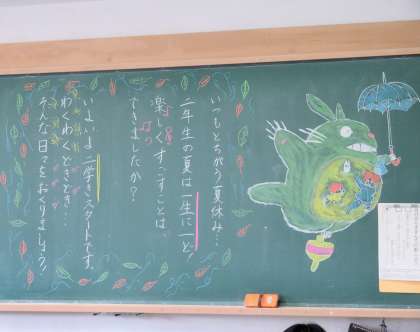 いつもとちがう夏休み…
二年生の夏は一生に一ど!
楽しくすごすことは、
できましたか?
いよいよ二学きスタートです。
わくわくどきどき…
そんな日々をおくりましょう!